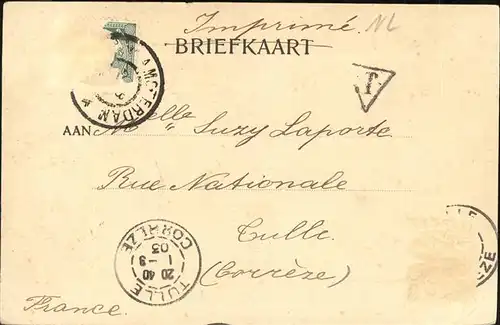 Imprimé. NL
BRIEFKAART
AMSTERDAM
T
AAN Melle Suzy Laporte
Rue Nationale
Tulle.
(Corrèze)
TULLE
1-9
20 40
03
CORRÈZE
France.